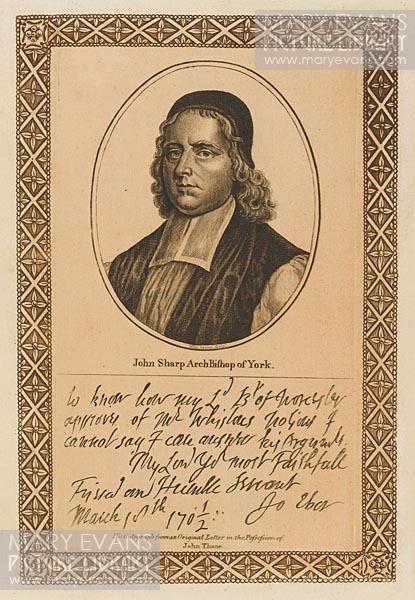 MARY EVANS
PICTURE LIBRARY
www.maryevans.com
John Sharp ArchBishop of York.
to know how my Ld. Bp of Worcester
approves of Mr Whistons notions I
cannot say I can answer his Arguments.
My Lord Yr most Faithfull
Friend and Humble Servant
Jo Ebor
March 18th 170 1/2
from an Original Letter in the Possession of
John Thane
MARY EVANS
PICTURE LIBRARY
www.maryevans.com